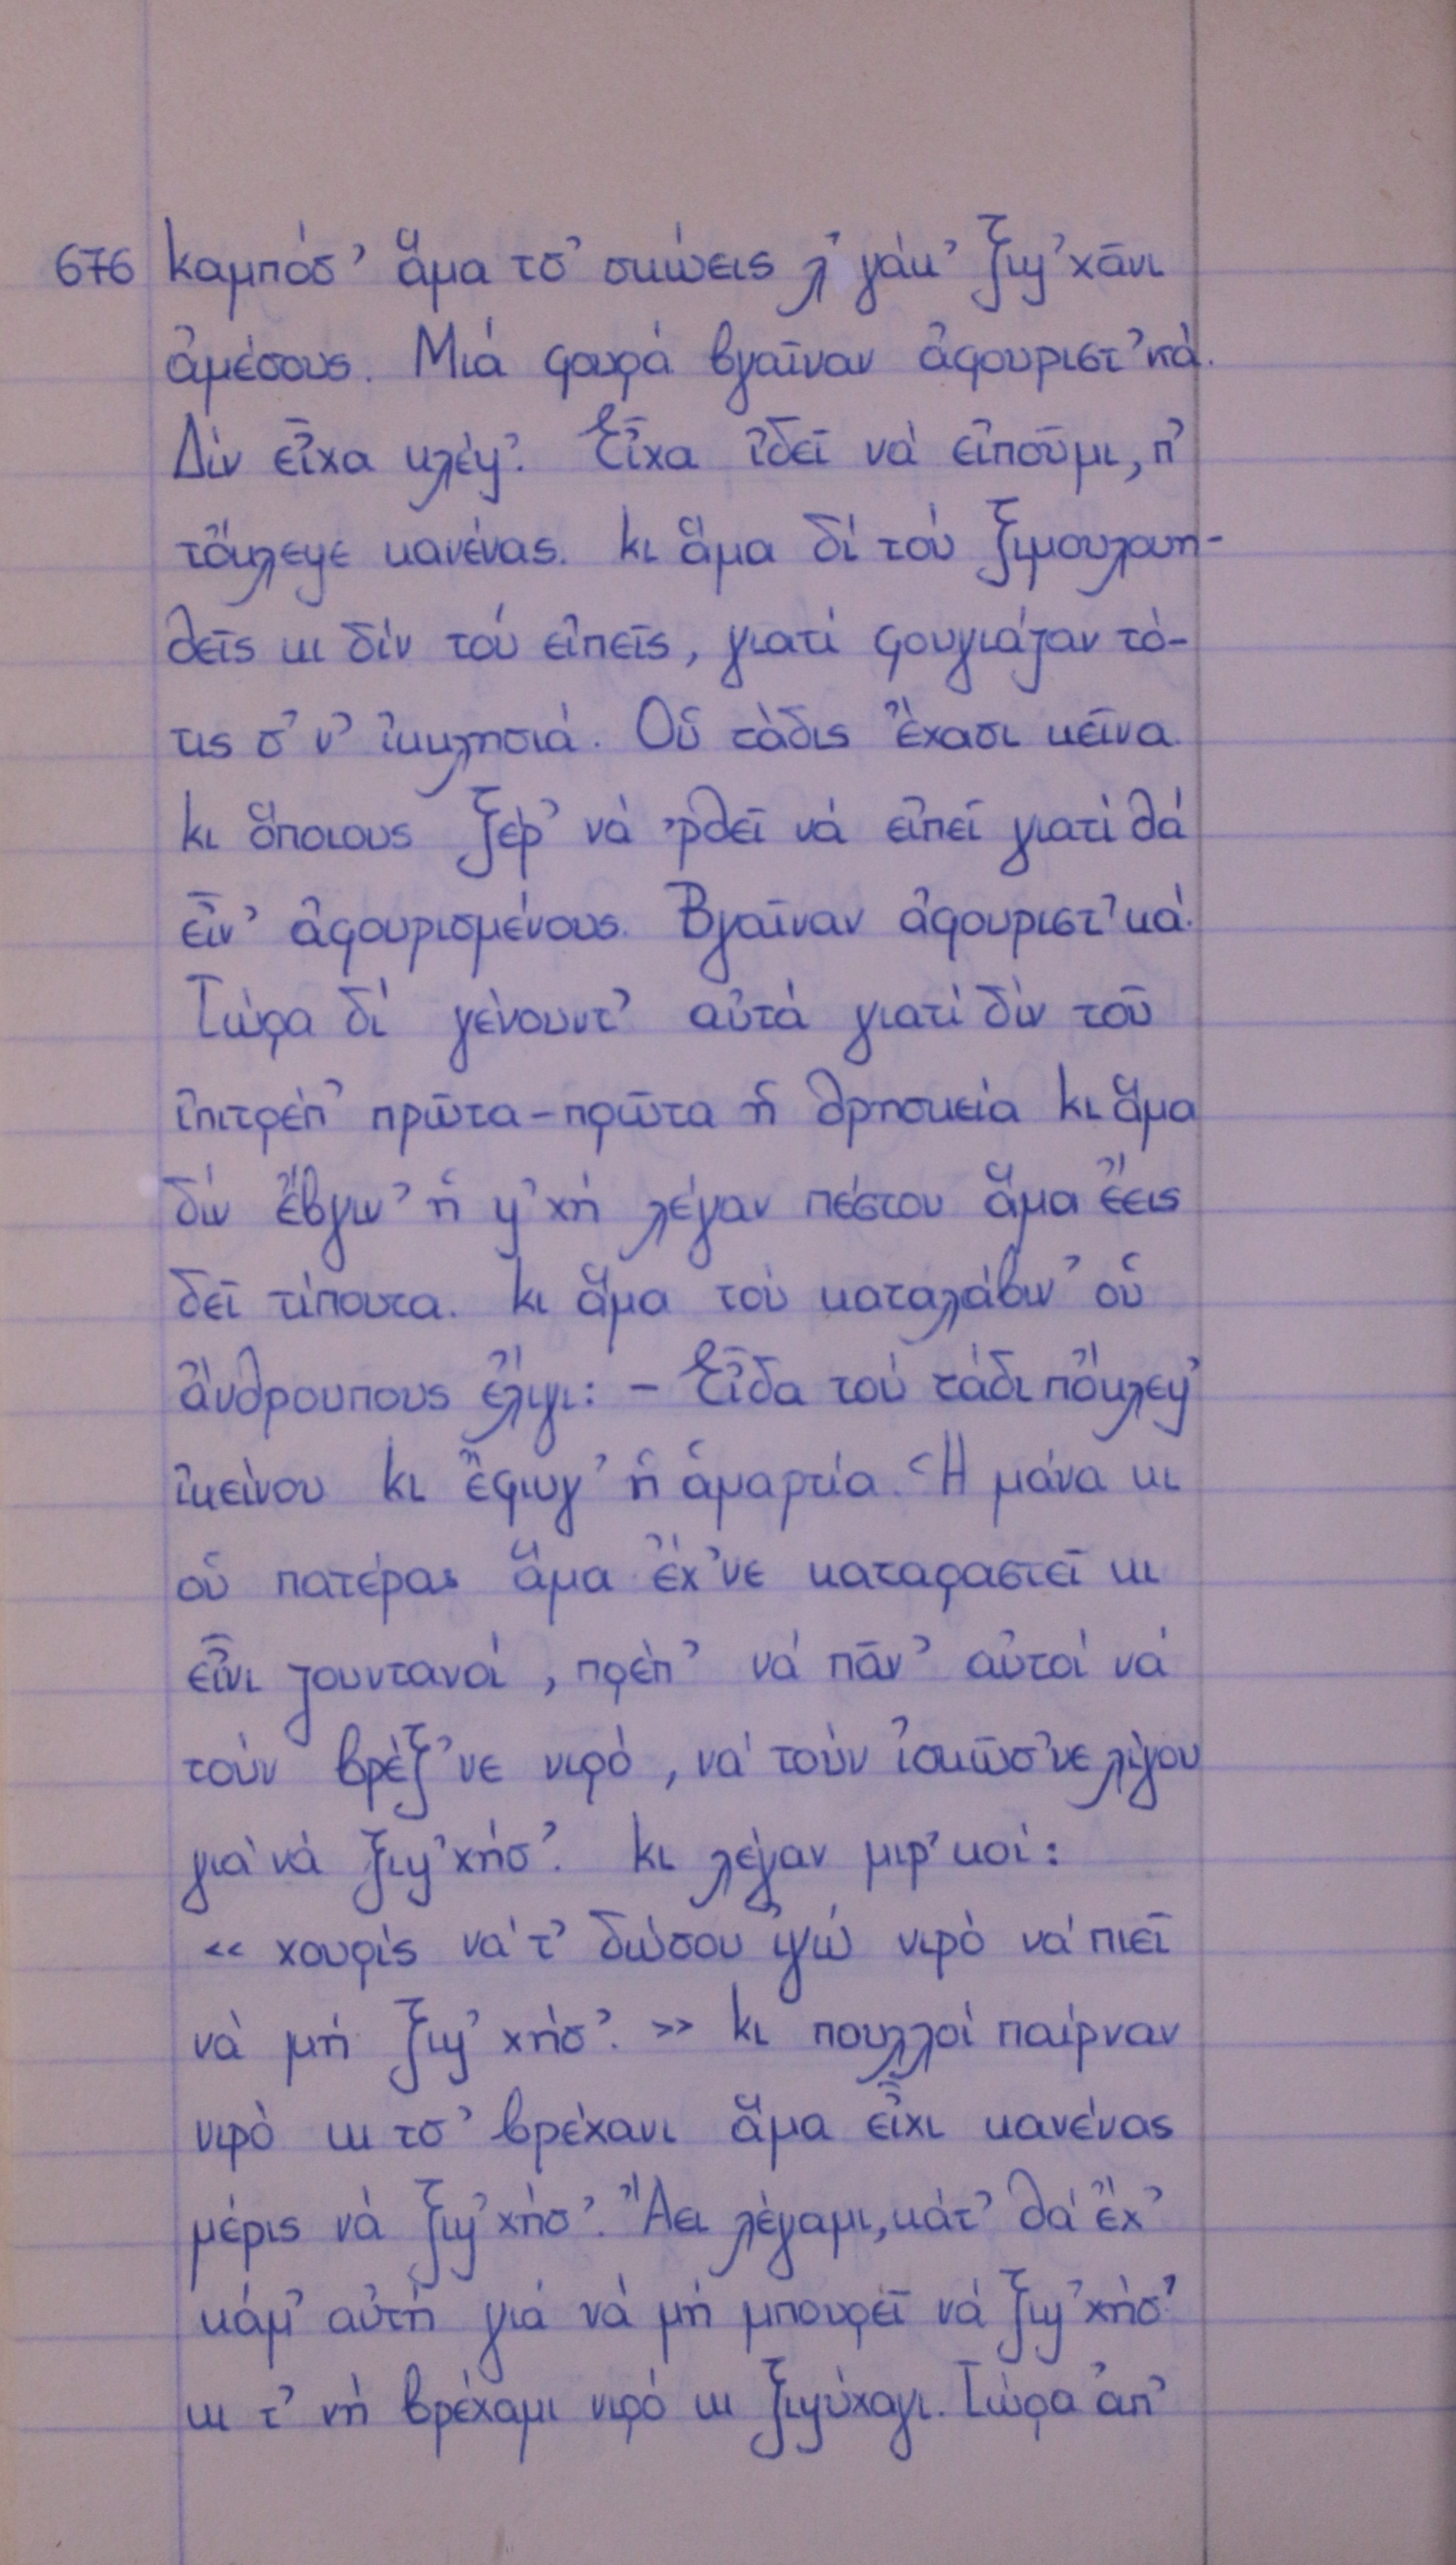 676 Καμπόσ' ἅμα τσ' σκώεις λ'γάκ' ξιψ'χᾶνι
ἀμέσους. Μιά φουρά βγαῖναν ἀφουριστ'κά.
Δίν εἶχα κλέψ'. Εἶχα ἰδεῖ νά εἰποῦμι, π'
τὄκλεψε κανένας. Κι ἅμα δί τού ξιμουλουη-
θεῖς κι δίν τού εἰπεῖς, γιατί φουγιάζαν τό-
τις σ' ν' ἰκκλησιά. Οὗ τάδις ἔχασι κεῖνα
κι ὅποιους ξέρ' νά 'ρθεῖ νά εἰπεῖ γιατί θά
εἶν' ἀφουρισμένους. Βγαῖναν ἀφουριστ'κά.
Τώρα δί γένουντ' αὐτά γιατί δίν τοῦ
ἰπιτρέπ' πρῶτα-πρῶτα ἡ θρησκεία κι ἅμα
δίν ἔβγιν' ἡ ψ'χή λέγαν πέστου ἅμα ἔεις
δεῖ τίπουτα. Κι ἅμα τού καταλάβιν' οὑ
ἄνθρουπους ἔλιγι: - Εἶδα τού τάδι πὄκλεψ'
ἰκείνου κι ἔφιυγ' ἡ ἁμαρτία. Ἡ μάνα κι
οὑ πατέρας ἅμα ἔχ'νε καταραστεῖ κι
εἶνι ζουντανοί, πρέπ' νά πᾶν' αὐτοί νά
τούν βρέξ'νε νιρό, νά τούν ἰσκῶσ'νε λίγου
γιά νά ξιψ'χήσ'. Κι λέγαν μιρ'κοί:
« χουρίς νά τ' δώσου ἰγώ νιρό νά πιεῖ
νά μή ξιψ'χήσ'. » Κι πουλλοί παίρναν
νιρό κι τσ' βρέχανι ἅμα εἶχι κανένας
μέρις νά ξιψ'χήσ'. Ἄει λέγαμι, κάτ' θά ἔχ'
κάμ' αὐτή γιά νά μή μπουρεῖ νά ξιψ'χήσ'
κι τ' νή βρέχαμι νιρό κι ξιψύχαγι. Τώρα ἀπ'